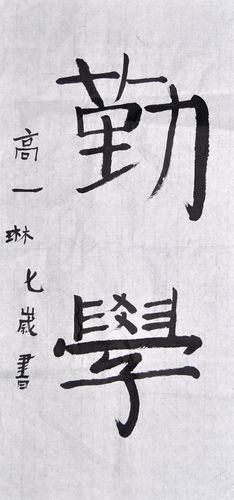 勤學
高一琳七歲書